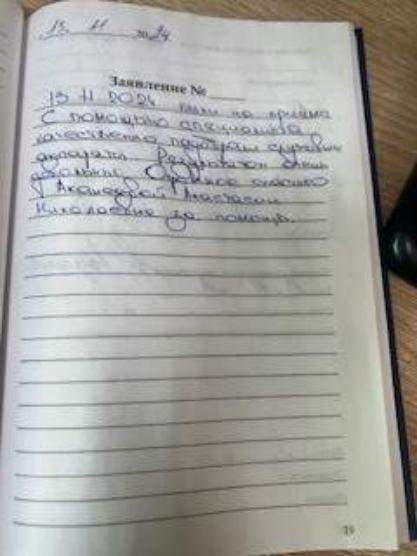 13 11 2024
Заявление №
13 11 2024 были на приёме
С помощью специалиста
качественно подобрали слуховые
аппараты Результатом очень
довольны Огромное спасибо
Анастасии
Николаевне за помощь.